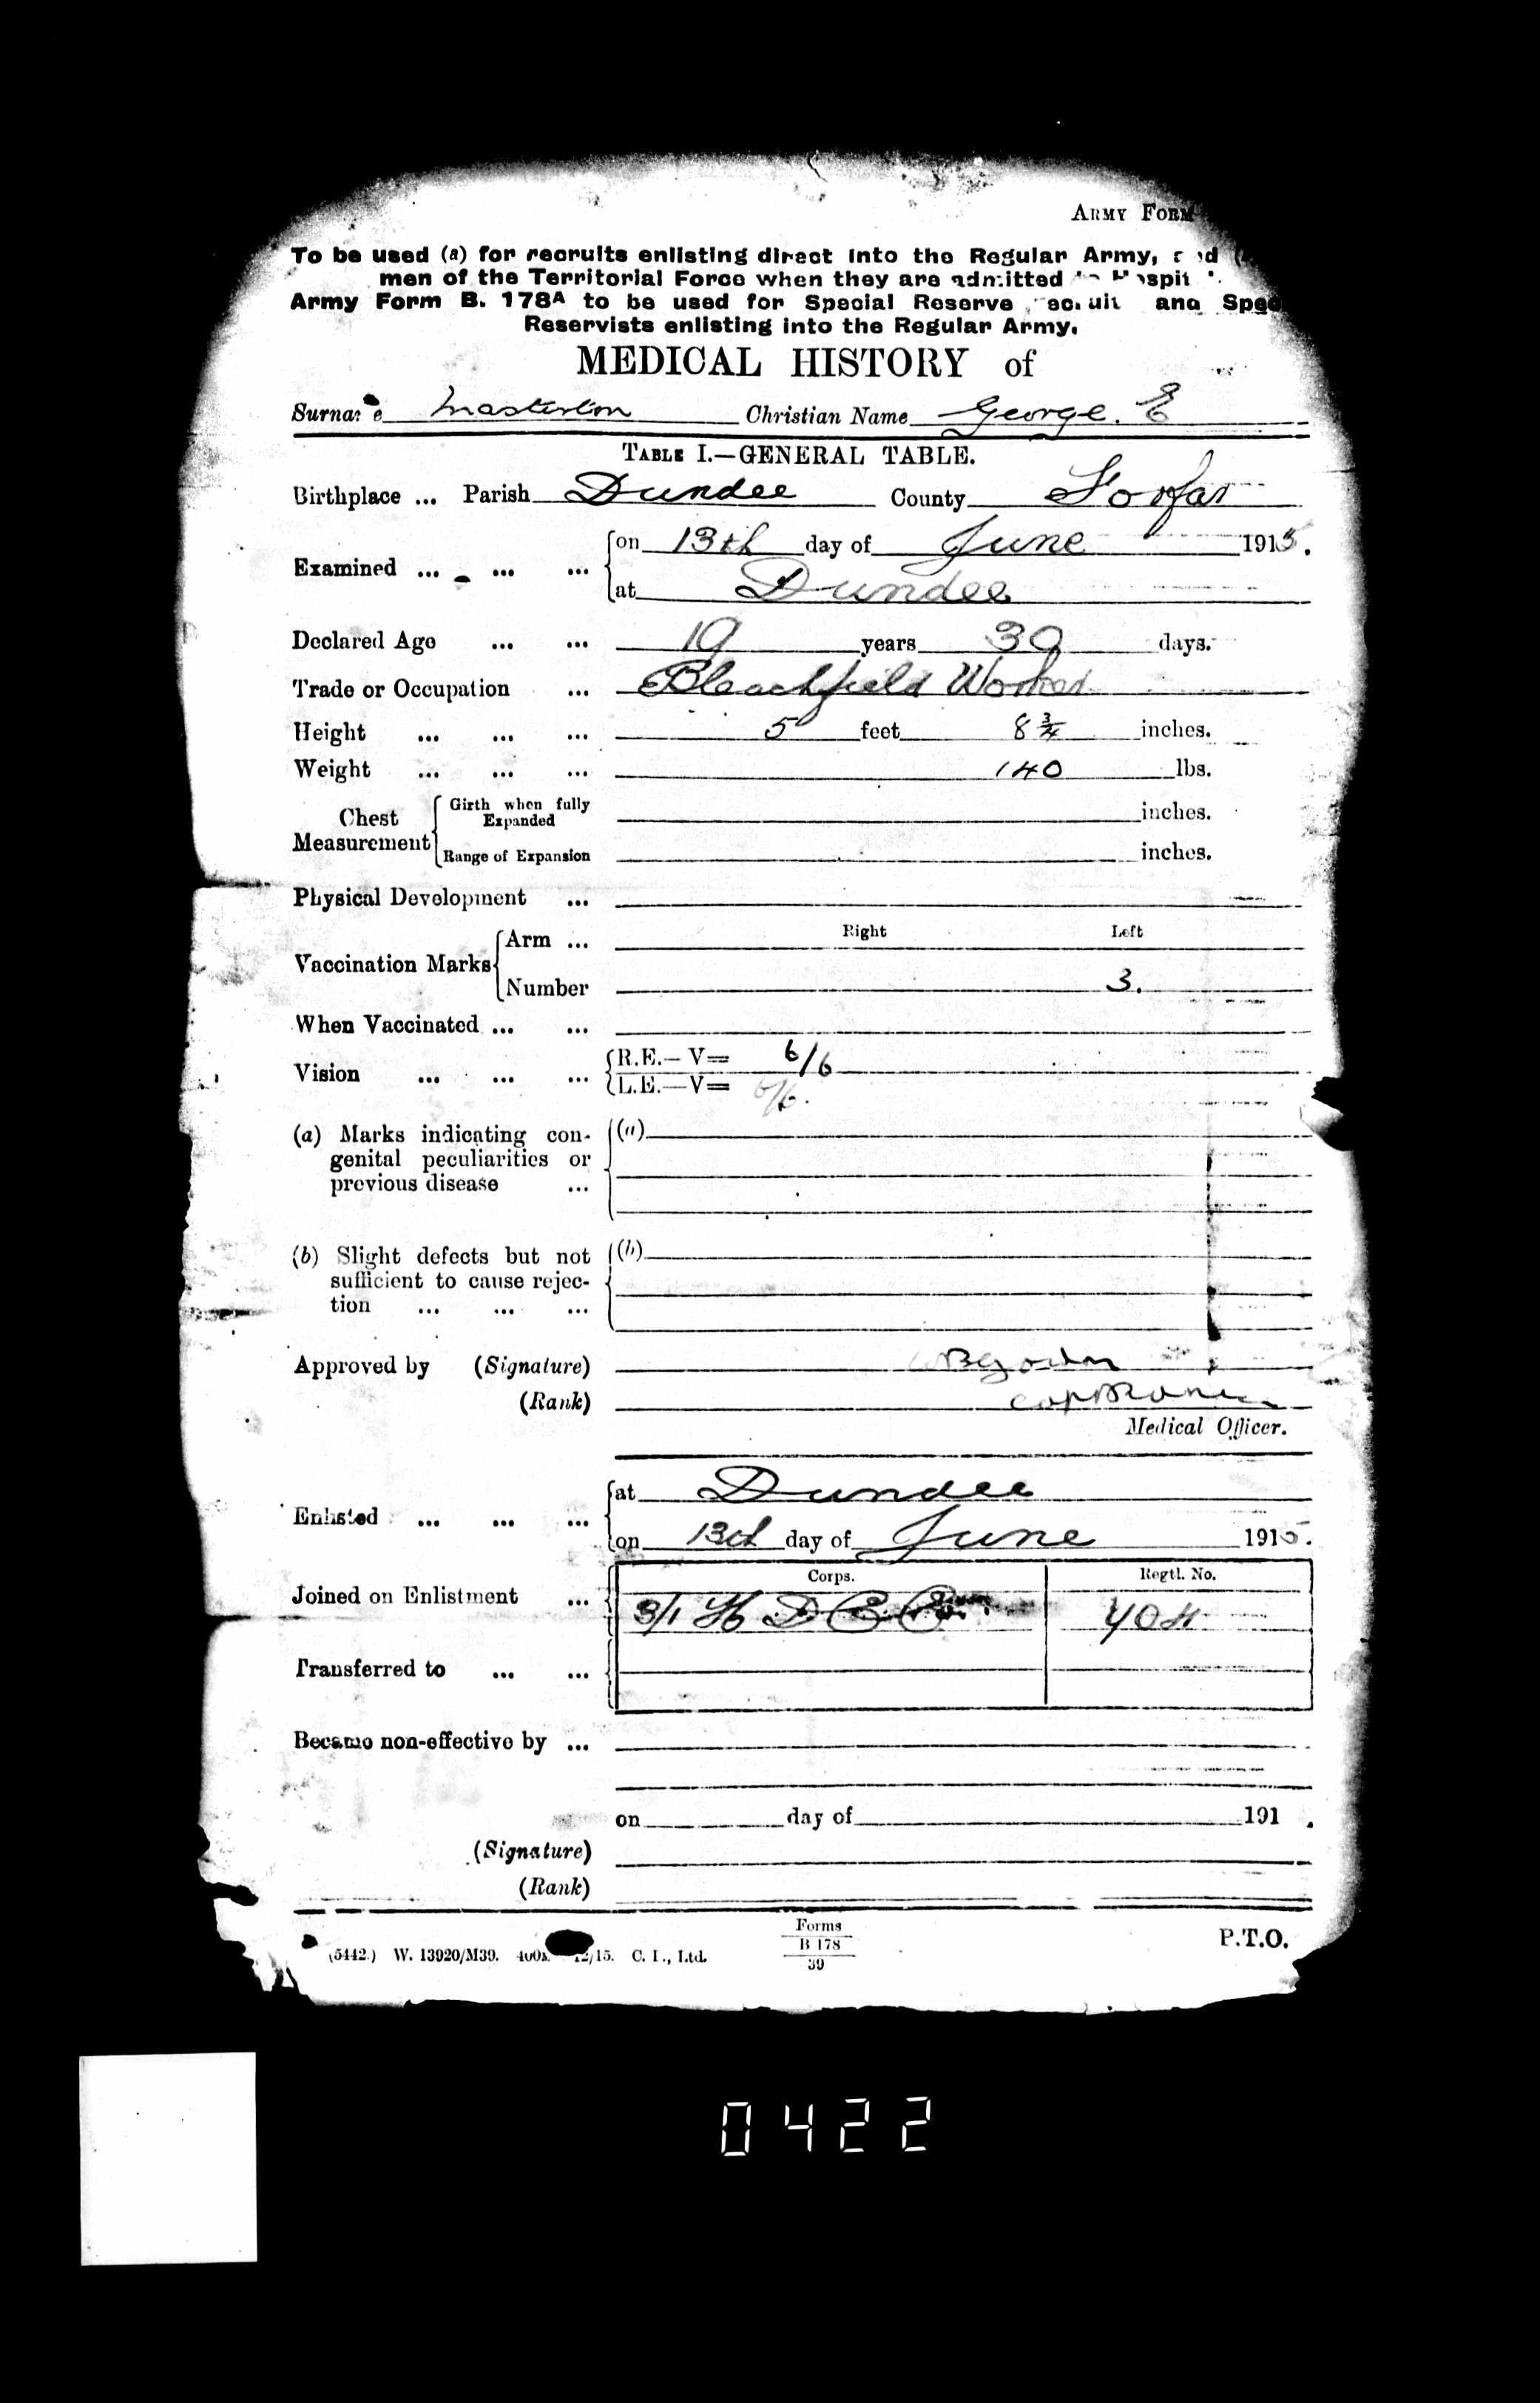 ARMY FORM
To be used (a) for recruits enlisting direct into the Regular Army, and
men of the Territorial Force when they are admitted to Hospit
Army Form B. 178A to be used for Special Reserve and Spec
Reservists enlisting into the Regular Army.
MEDICAL HISTORY of
Surname Masterton Christian Name George. E
TABLE I.—GENERAL TABLE.
Birthplace ... Parish Dundee County Forfar
Examined ... ... ... on 13th day of June 1915.
at Dundee
Declared Age ... ... 19 years 30 days.
Trade or Occupation ... Bleachfield Worker
Height ... ... ... 5 feet 8 3/4 inches.
Weight ... ... ... 140 lbs.
Chest Measurement Girth when fully Expanded inches.
Range of Expansion inches.
Physical Development ...
Right Left
Vaccination Marks Arm ...
Number 3.
When Vaccinated ... ...
Vision ... ... ... R.E.—V= 6/6
L.E.—V= 6/6.
(a) Marks indicating con- (a)
genital peculiarities or
previous disease ...
(b) Slight defects but not (b)
sufficient to cause rejec-
tion ... ... ...
Approved by (Signature)
(Rank)
Medical Officer.
Enlisted ... ... ... at Dundee
on 13th day of June 1915.
Corps. Regtl. No.
Joined on Enlistment ... 3/1 H D C C 404
Transferred to ... ...
Became non-effective by ...
on day of 191 .
(Signature)
(Rank)
Forms
B 178
39
(5442.) W. 13920/M39. 12/15. Ltd.
P.T.O.
0422